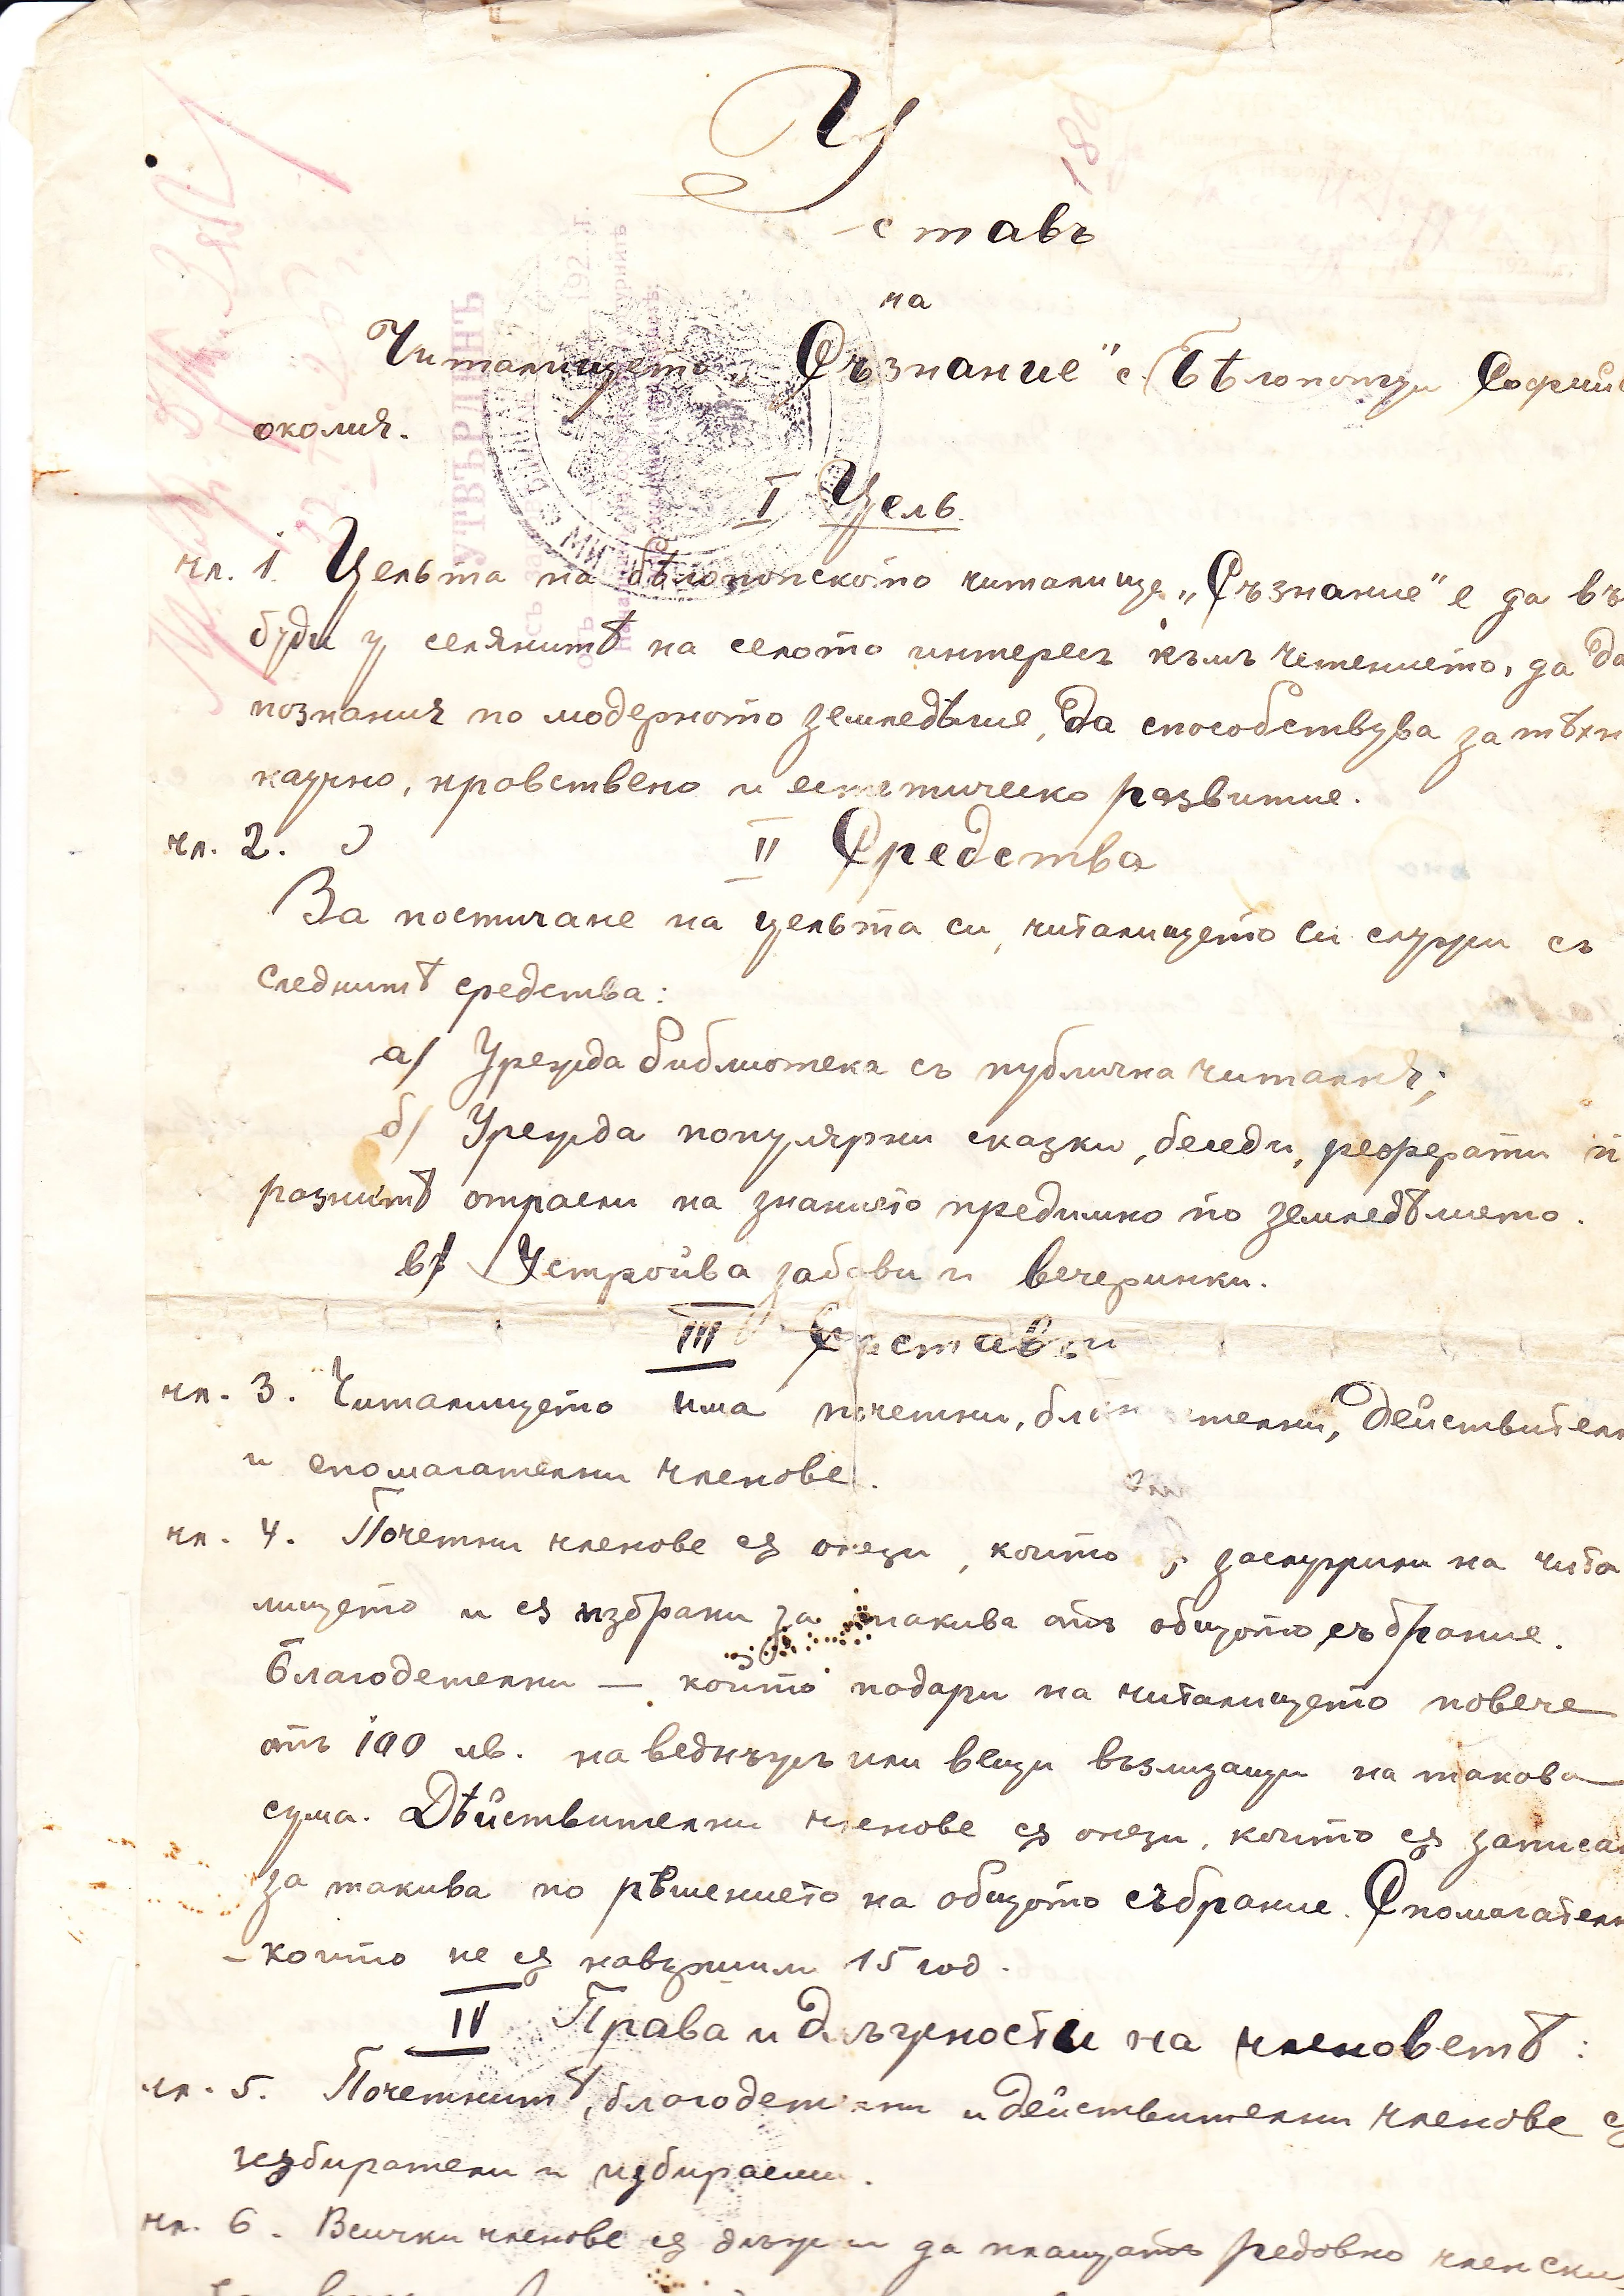 Уставъ
на
Читалището „Съзнание" с. Бѣлопопци Софийс
околия.
I Цель
чл. 1. Цельта на бѣлопопското читалище „Съзнание" е да въ
буди у селянитѣ на селото интересъ към четението, да да
познания по модерното земледѣлие, да способствува за тѣхн
научно, нравствено и естетическо развитие.
чл. 2. II Средства
За постигане на цельта си, читалището си служи съ
следнитѣ средства:
а/ Урежда библиотека съ публична читалня;
б/ Урежда популярни сказки, беседи, реферати п
разнитѣ отрасли на знанието предимно по земледѣлието.
в/ Устройва забави и вечеринки.
III Съставъ
чл. 3. Читалището има почетни, благодетелни, действителн
и спомагателни членове.
чл. 4. Почетни членове сѫ онези, които сѫ заслужили на чита
лището и сѫ избрани за такива отъ общото събрание.
Благодетелни — който подари на читалището повече
отъ 100 лв. на веднъжъ или вещи възлизащи на такова
сума. Дѣйствителни членове сѫ онези, които сѫ записан
за такива по рѣшението на общото събрание. Спомагателн
– които не сѫ навършили 15 год.
IV Права и длъжности на членоветѣ:
чл. 5. Почетнитѣ, благодетелни и действителни членове сѫ
избиратели и избираеми.
чл. 6. Всички членове сѫ длъжни да плащатъ редовно членски